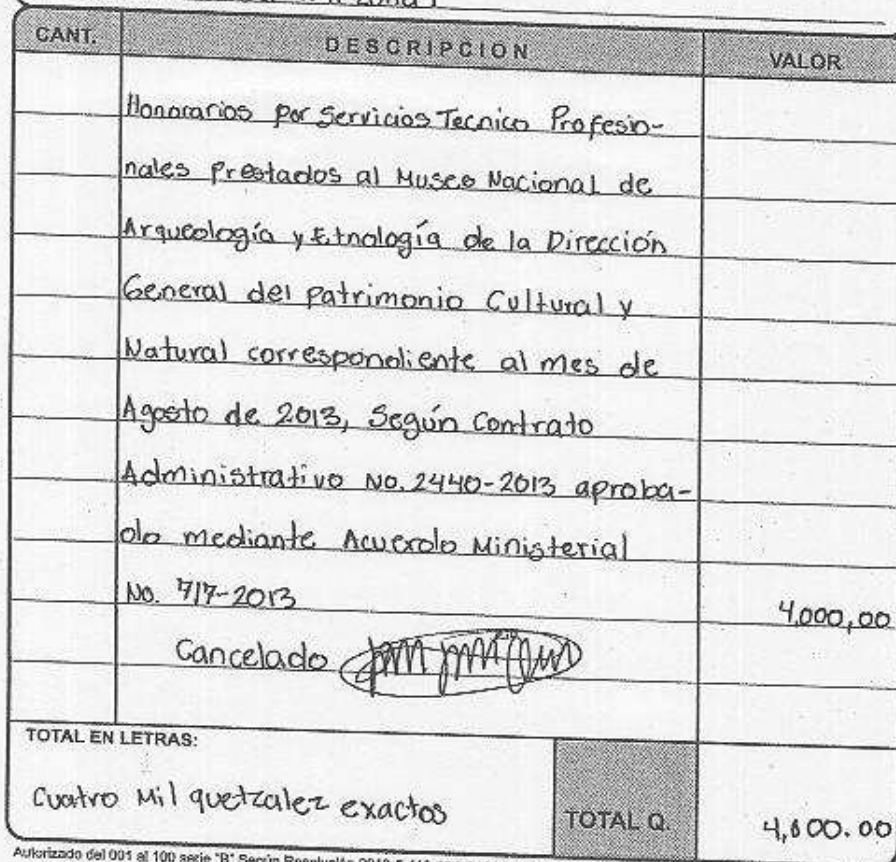 CANT. DESCRIPCION VALOR
Honorarios por Servicios Tecnico Profesio-
nales Prestados al Museo Nacional de
Arqueología y Etnología de la Dirección
General del patrimonio Cultural y
Natural correspondiente al mes de
Agosto de 2013, Según Contrato
Administrativo No. 2440-2013 aproba-
do mediante Acuerdo Ministerial
No. 717-2013 4,000,00
Cancelado
TOTAL EN LETRAS:
Cuatro Mil quetzalez exactos TOTAL Q. 4,000.00
Autorizado del 001 al 100 serie "B" Según Resolución